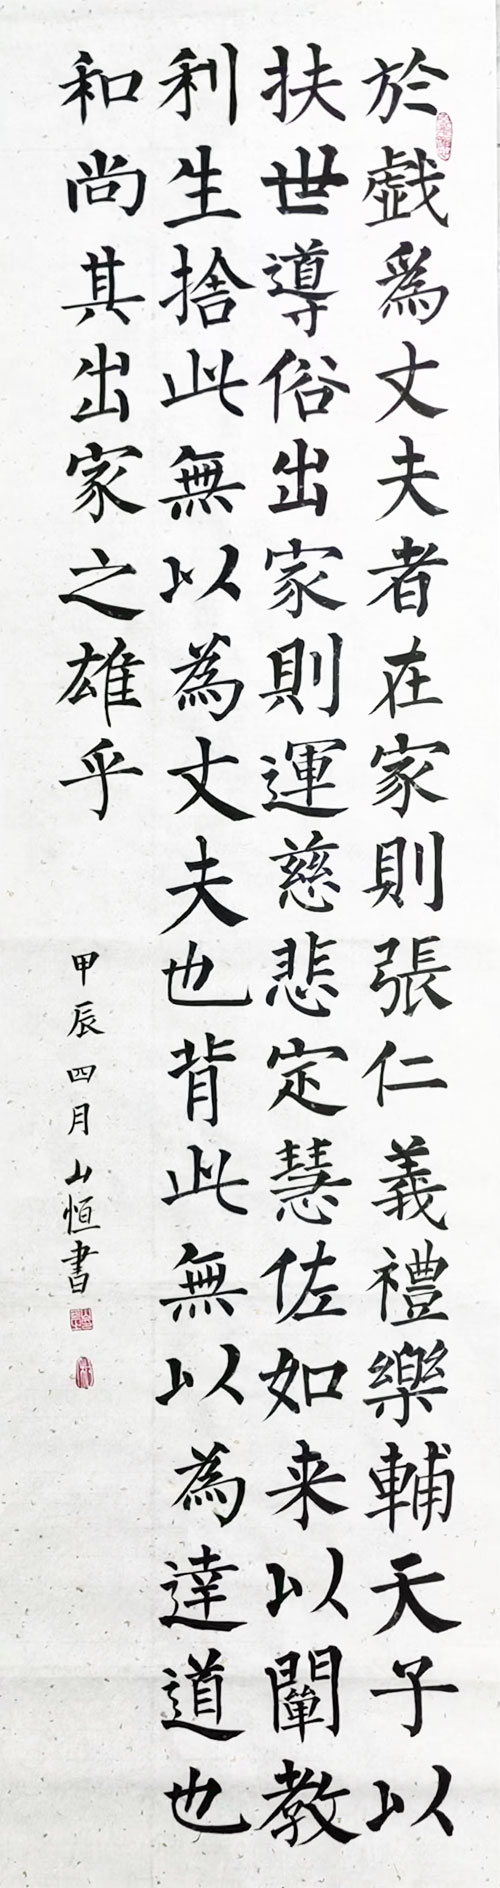 於戱為丈夫者在家則張仁義禮樂輔天子以
扶世導俗出家則運慈悲定慧佐如来以闡教
利生捨此無以為丈夫也背此無以為達道也
和尚其出家之雄乎
甲辰四月山恒書